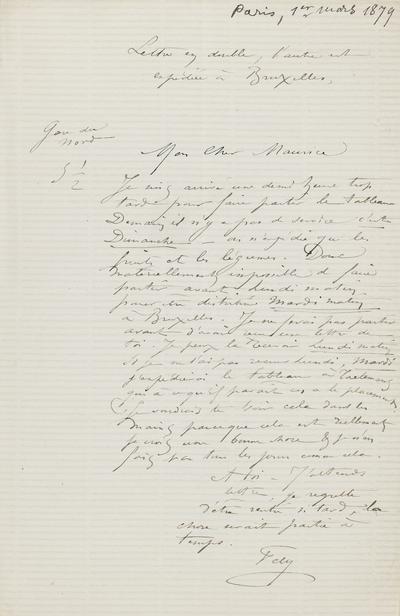 Paris, 1er mars 1879
Lettre en double, l'autre est
expédiée à Bruxelles.
Gare du
Nord
5 1/2
Mon Cher Maurice
Je suis arrivé une demi heure trop
tard pour faire partir le tableau
Demain il n'y a pas de service c'est
Dimanche – on n'expédie que les
fruits et les légumes. Donc
matériellement impossible de faire
partir avant lundi matin
pour être distribué Mardi matin
à Bruxelles. Je ne ferai pas partir
avant d'avoir une lettre de
toi. Je peux la recevoir lundi matin
Si je n'ai pas reçu lundi, Mardi
j'expédierai le tableau à
qui à ce qu'il paraît en a le placement
Je voudrais te voir cela dans les
mains parceque cela est réellement
je crois une bonne chose & je n'en
fais pas tous les jours comme cela.
A toi – J'attends
lettre, je regrette
d'être rentré si tard, la
chose serait partie à
temps.
Fély